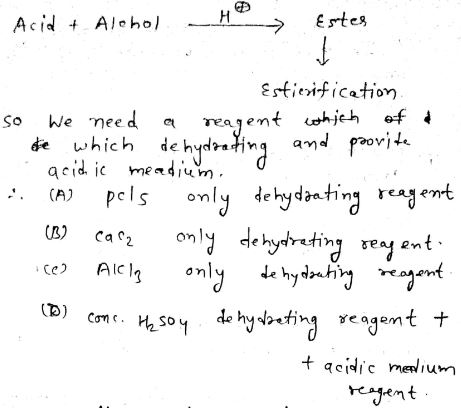 Acid + Alohol H⊕ → Ester
↓
Estierification.
so We need a reagent which of
de which dehydrating and provite
acidic meadium.
∴ (A) pcl5 only dehydrating reagent
(B) cac2 only dehydrating reagent.
(c) AlCl3 only dehydrating reagent.
(D) conc. H2SO4 dehydrating reagent +
+ acidic medium
reagent.